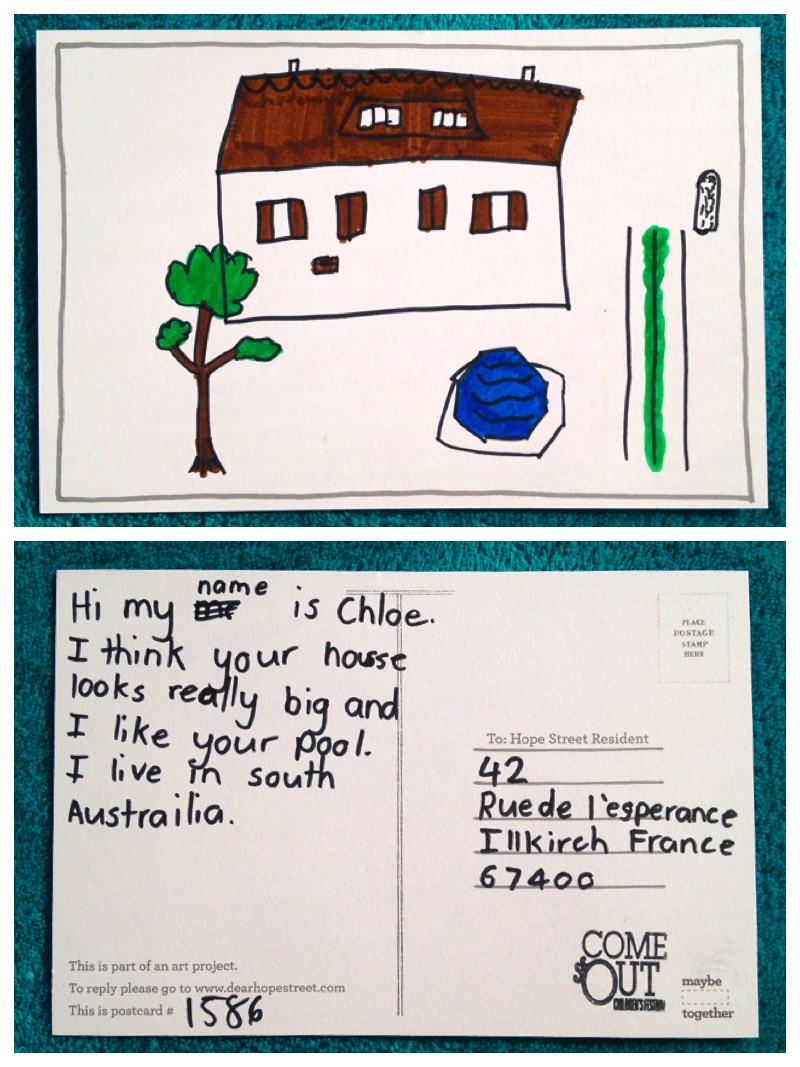 Hi my name is Chloe.
I think your house
looks really big and
I like your pool.
I live in south
Austrailia.
This is part of an art project.
To reply please go to www.dearhopestreet.com
This is postcard # 1586
PLACE
POSTAGE
STAMP
HERE
To: Hope Street Resident
42
Rue de l'esperance
Illkirch France
67400
COME
OUT
CHILDREN'S FESTIVAL
maybe
together